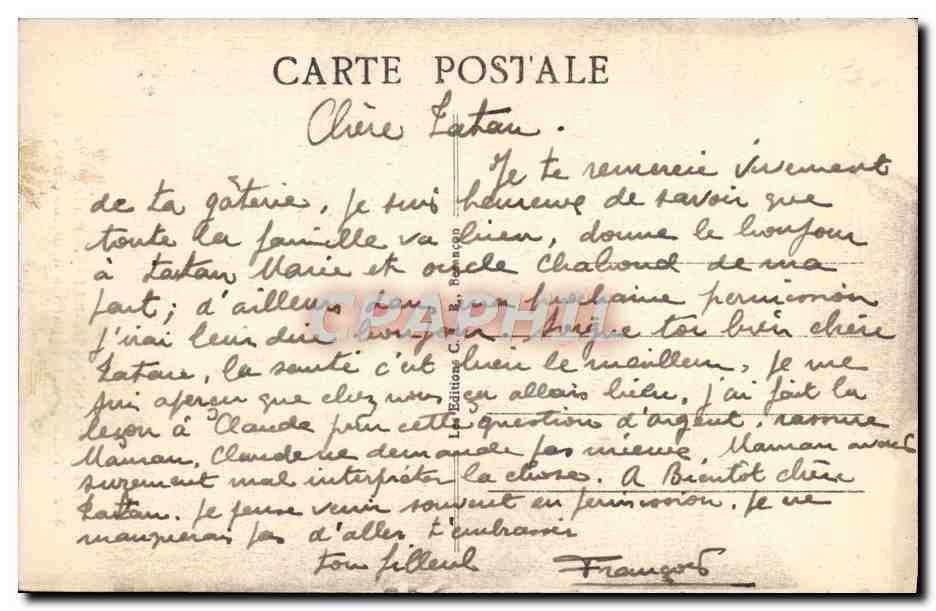 CARTE POSTALE
Chère Tatan.
Je te remercie vivement
de ta gâterie, je suis heureux de savoir que
toute la famille va bien, donne le bonjour
à tatan Marie et oncle Chaboud de ma
part; d'ailleurs dans ma prochaine permission
j'irai leur dire bonjour. Soigne toi bien chère
Tatan, la santé c'est bien le meilleur, je me
suis aperçu que chez nous ça allais bien, j'ai fait la
leçon à Claude pour cette question d'argent, rassure
Maman, Claude ne demande pas mieux, Maman avait
surement mal interpréter la chose. A Bientot chère
Tatan. Je pense venir souvent en permission, je ne
manquerais pas d'aller t'embrasser
ton filleul François
Les Editions C. L. B., Besançon
CPAPHIL